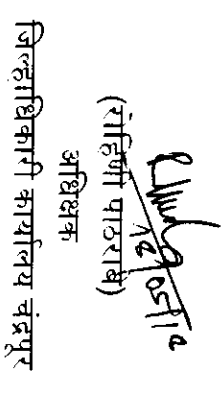 (रोहिणी पाठराबे)
अधिक्षक
जिल्हाधिकारी कार्यालय चंद्रपूर